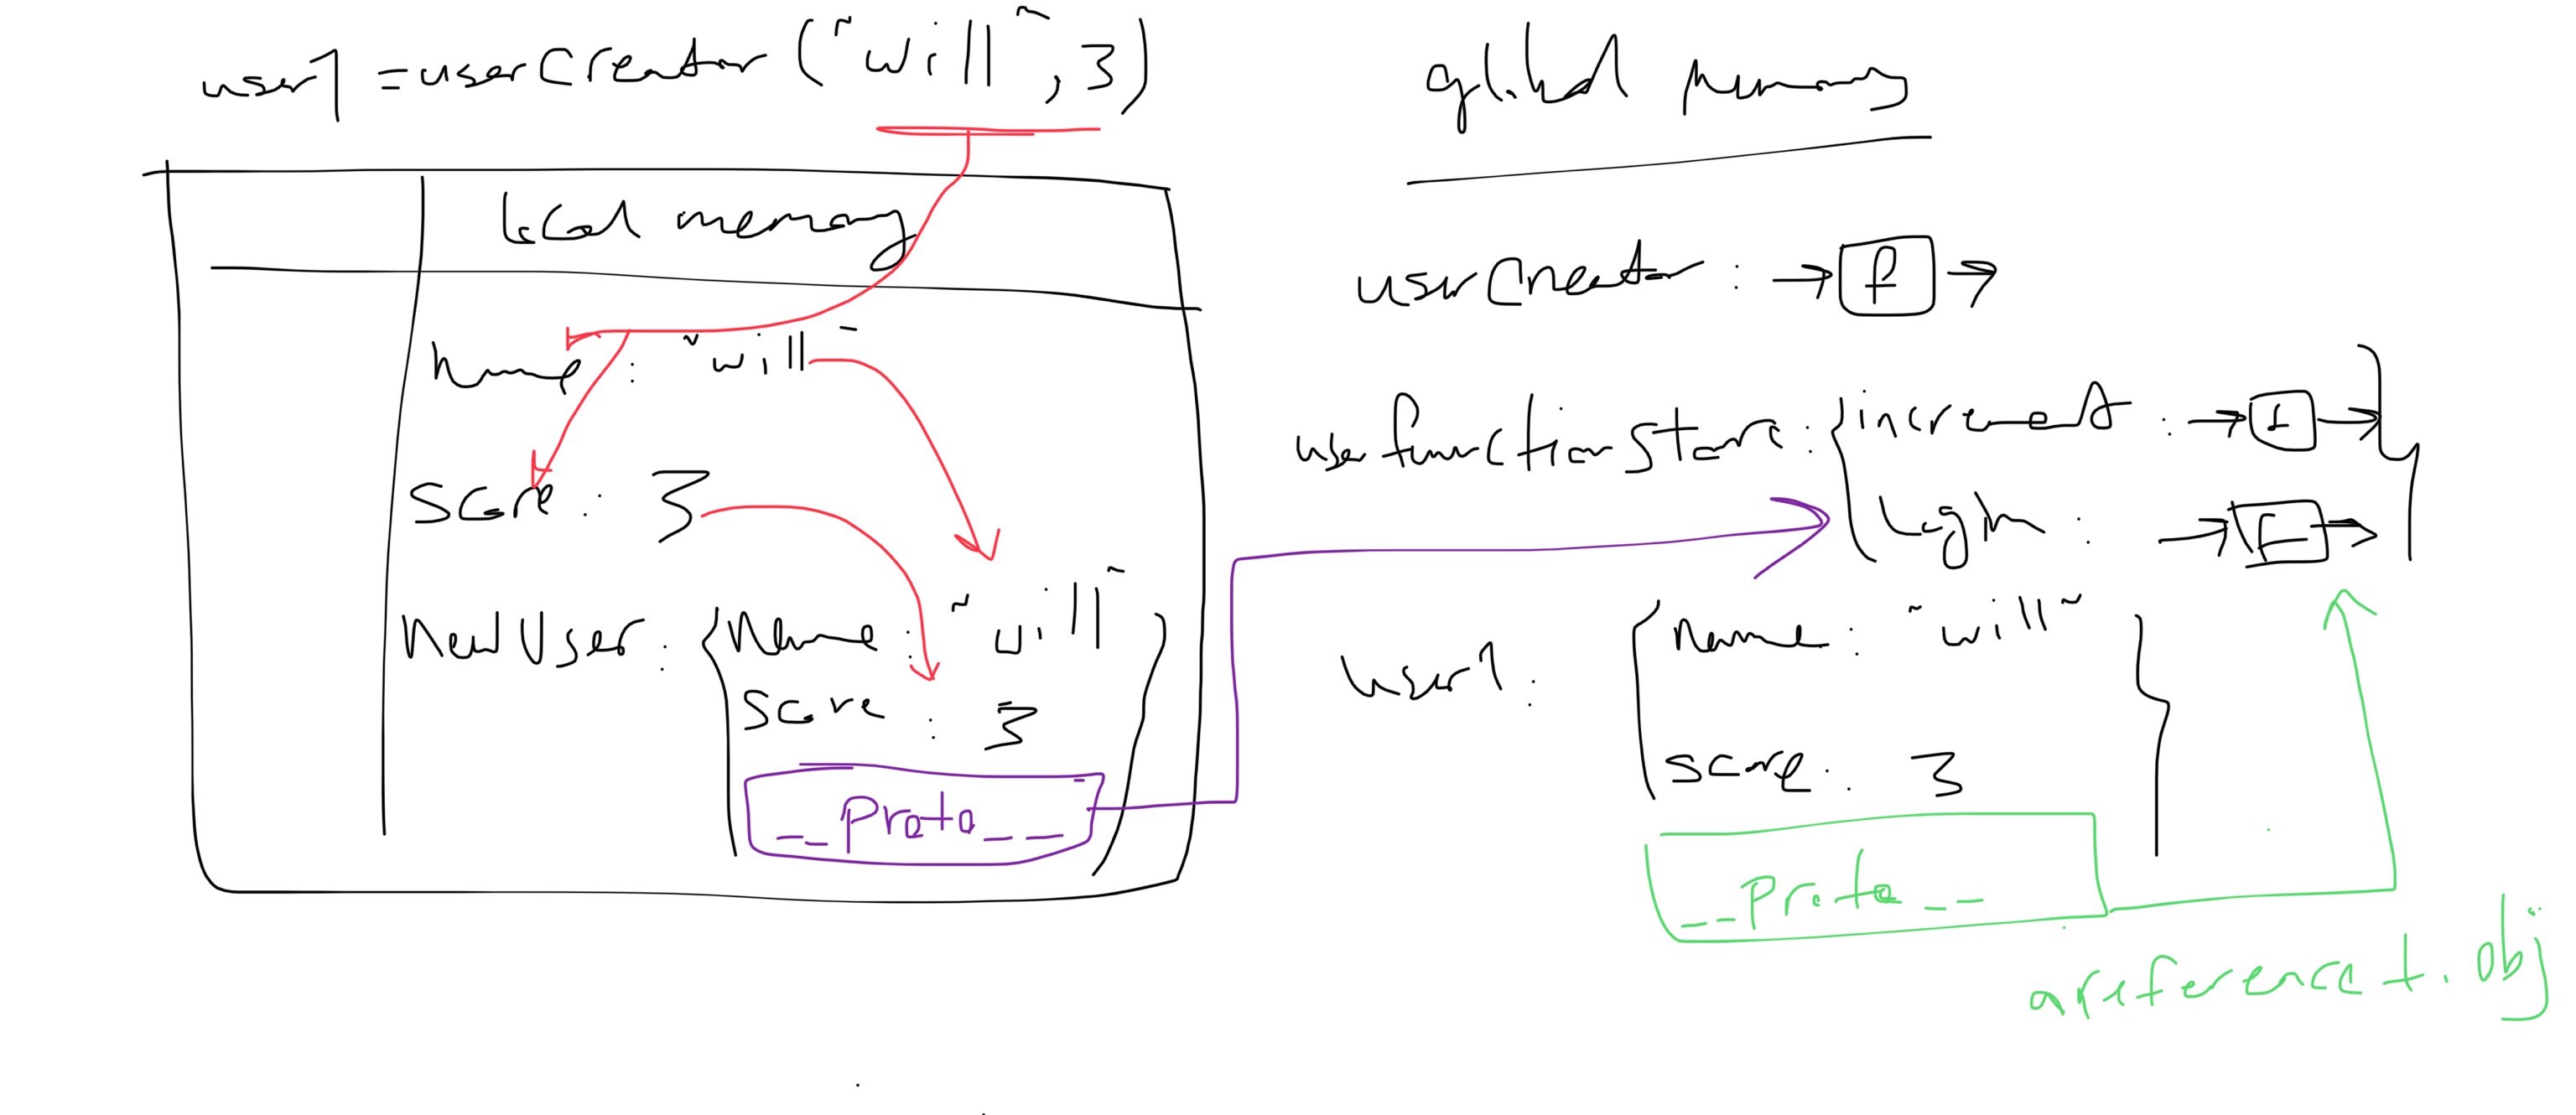 user1 = userCreator ("will", 3)
local memory
Name : "will"
Score : 3
New User : { Name : "will"
Score : 3
__Proto__ }
global memory
userCreator : → [f] →
userfunctionStore : { increment : → [f] → }
Login : → [f] →
user1 : { Name : "will" }
Score : 3
__Proto__
a reference to obj